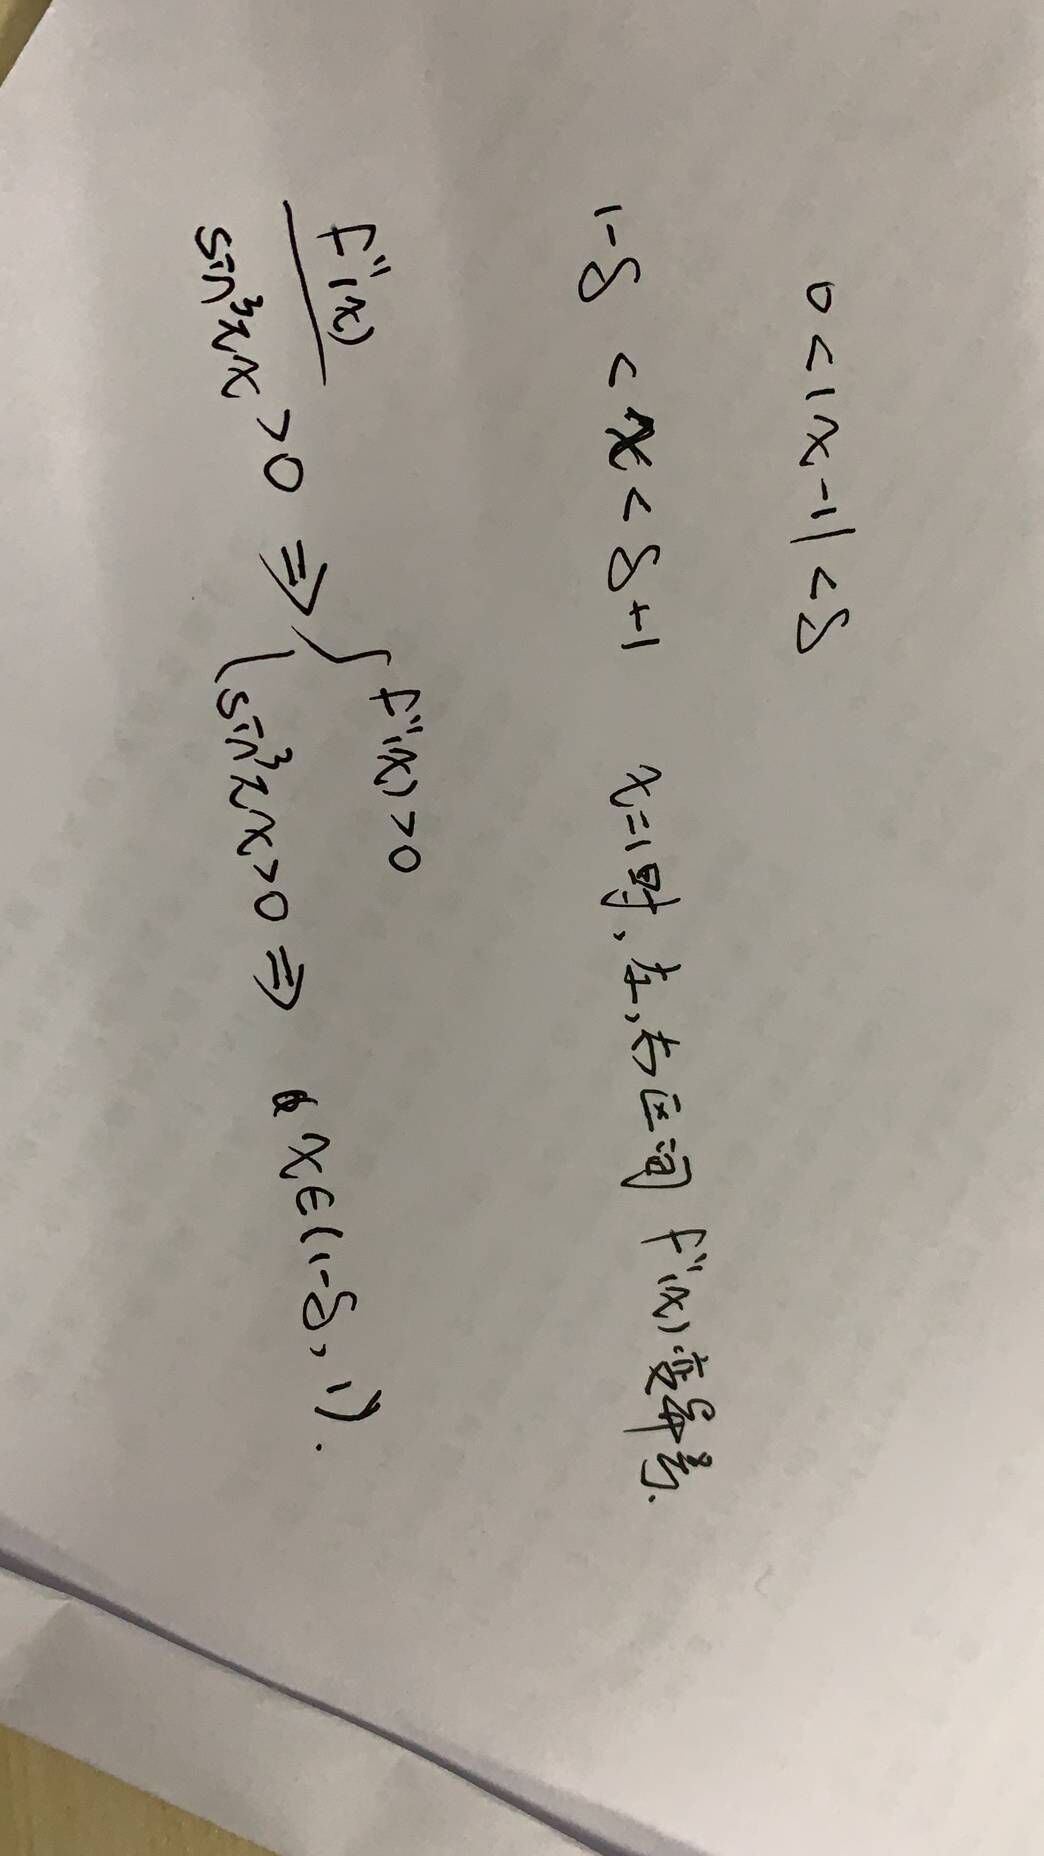 0<|x-1|<δ
1-δ < x < δ+1 x=1时,左,右区间 f''(x)变异号.
f''(x)
sin³πx >0 ⇒ { f''(x)>0
sin³πx>0 ⇒ x∈(1-δ,1).